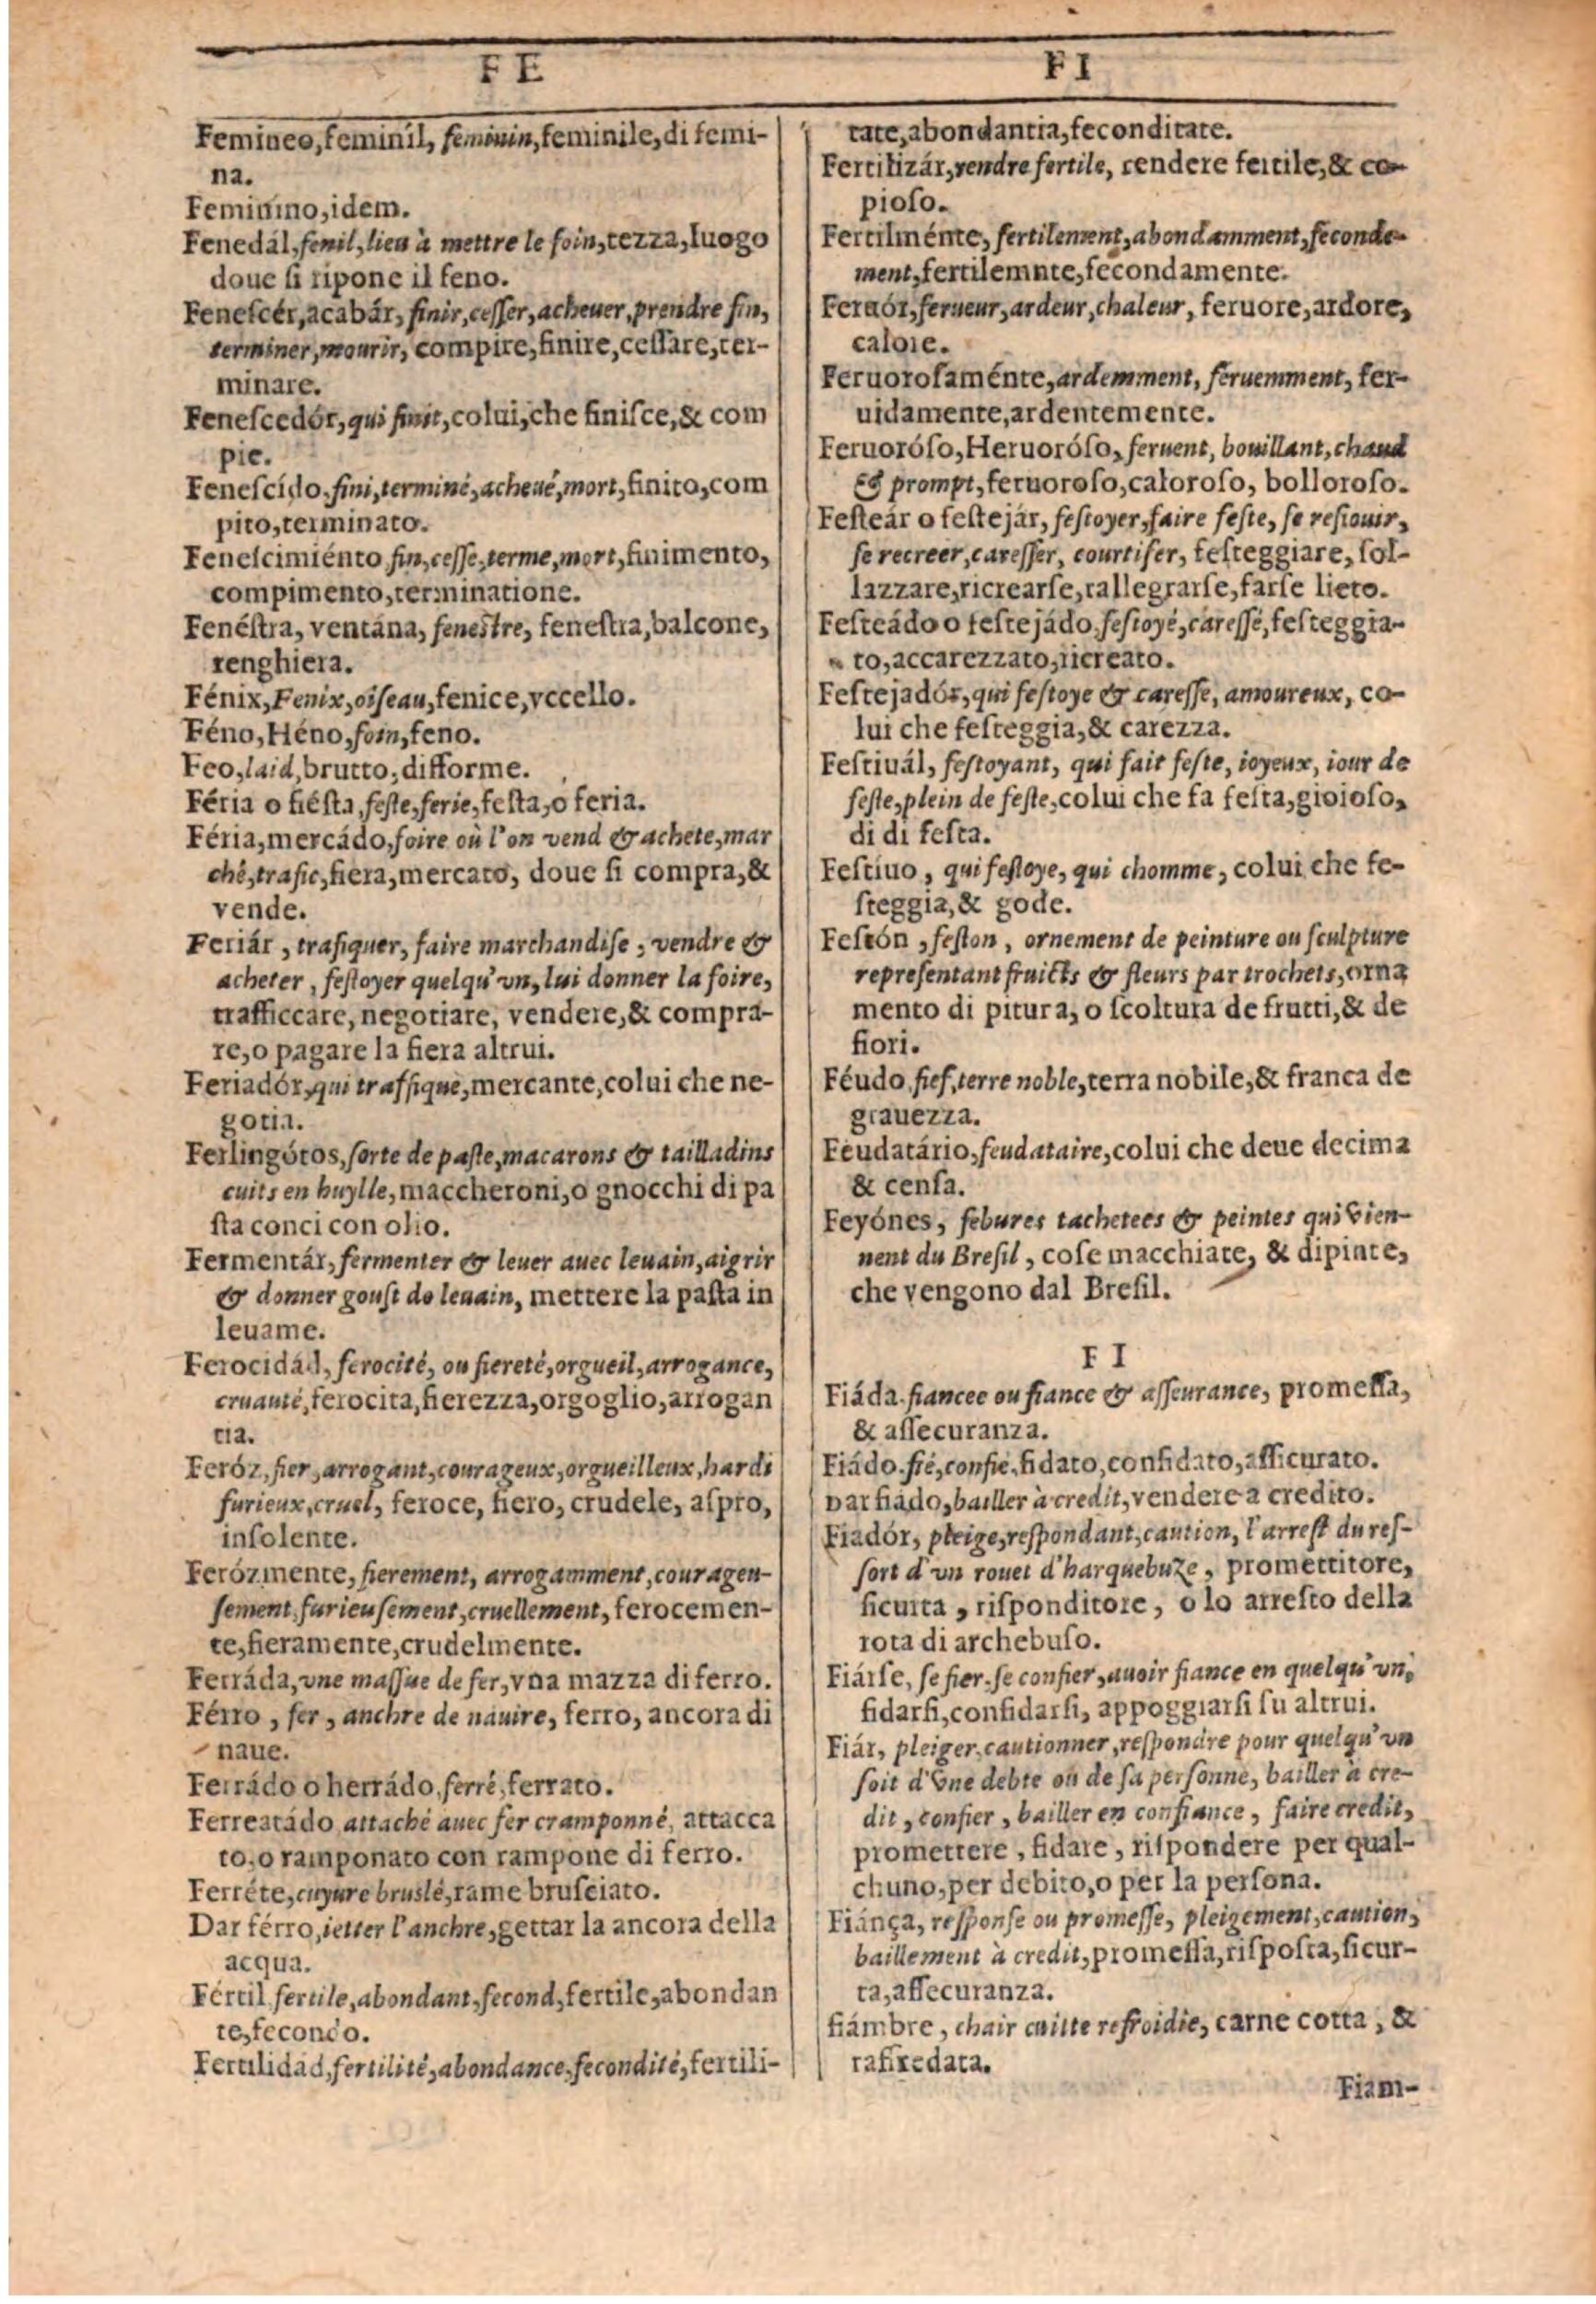 F E
Femineo, feminíl, feminin, feminile, di femi-
na.
Feminino, idem.
Fenedál, fenil, lieu à mettre le foin, tezza, luogo
doue ſi ripone il feno.
Feneſcér, acabár, finir, ceſſer, acheuer, prendre fin,
terminer, mourir, compire, finire, ceſſare, ter-
minare.
Feneſcedór, qui finit, colui, che finiſce, & com
pie.
Feneſcído, fini, terminé, acheué, mort, finito, com
pito, terminato.
Feneſcimiénto, fin, ceſſe, terme, mort, finimento,
compimento, terminatione.
Fenéſtra, ventána, feneſtre, feneſtra, balcone,
renghiera.
Fénix, Fenix, oiſeau, fenice, vccello.
Féno, Héno, foin, feno.
Feo, laid, brutto, difforme.
Féria o fiéſta, feſte, ferie, feſta, o feria.
Féria, mercádo, foire où l'on vend & achete, mar
ché, trafic, fiera, mercato, doue ſi compra, &
vende.
Feriár, trafiquer, faire marchandiſe, vendre &
acheter, feſtoyer quelqu'vn, lui donner la foire,
trafficcare, negotiare, vendere, & compra-
re, o pagare la fiera altrui.
Feriadór, qui traffique, mercante, colui che ne-
gotia.
Ferlingótos, ſorte de paſte, macarons & tailladins
cuits en huylle, maccheroni, o gnocchi di pa
ſta conci con olio.
Fermentár, fermenter & leuer auec leuain, aigrir
& donner gouſt de leuain, mettere la paſta in
leuame.
Ferocidád, ferocité, ou fiereté, orgueil, arrogance,
cruauté, ferocita, fierezza, orgoglio, arrogan
tia.
Feróz, fier, arrogant, courageux, orgueilleux, hardi
furieux, cruel, feroce, fiero, crudele, aſpro,
inſolente.
Ferózmente, fierement, arrogamment, courageu-
ſement, furieuſement, cruellement, ferocemen-
te, fieramente, crudelmente.
Ferráda, vne maſſue de fer, vna mazza di ferro.
Férro, fer, anchre de nauire, ferro, ancora di
naue.
Ferrádo o herrádo, ferré, ferrato.
Ferreatádo attaché auec fer cramponné, attacca
to, o ramponato con rampone di ferro.
Ferréte, cuyure bruslé, rame bruſciato.
Dar férro, ietter l'anchre, gettar la ancora della
acqua.
Fértil fertile, abondant, fecond, fertile, abondan
te, fecondo.
Fertilidád, fertilité, abondance, fecondité, fertili-
F I
tate, abondantia, feconditate.
Fertilizár, rendre fertile, rendere fertile, & co-
pioſo.
Fertilménte, fertilement, abondamment, feconde-
ment, fertilemnte, fecondamente.
Feruór, ferueur, ardeur, chaleur, feruore, ardore,
calore.
Feruoroſaménte, ardemment, feruemment, fer-
uidamente, ardentemente.
Feruoróſo, Heruoróſo, feruent, bouillant, chaud
& prompt, feruoroſo, caloroſo, bolloroſo.
Feſteár o feſtejár, feſtoyer, faire feſte, ſe reſiouir,
ſe recreer, careſſer, courtiſer, feſteggiare, ſol-
lazzare, ricrearſe, rallegrarſe, farſe lieto.
Feſteádo o feſtejádo, feſtoyé, careſſé, feſteggia-
to, accarezzato, ricreato.
Feſtejadór, qui feſtoye & careſſe, amoureux, co-
lui che feſteggia, & carezza.
Feſtiuál, feſtoyant, qui fait feſte, ioyeux, iour de
feſte, plein de feſte, colui che fa feſta, gioioſo,
di di feſta.
Feſtíuo, qui feſtoye, qui chomme, colui che fe-
ſteggia, & gode.
Feſtón, feſton, ornement de peinture ou ſculpture
repreſentant fruicts & fleurs par trochets, orna
mento di pitura, o ſcoltura de frutti, & de
fiori.
Féudo, fief, terre noble, terra nobile, & franca de
grauezza.
Feudatário, feudataire, colui che deue decima
& cenſa.
Feyónes, febures tachetees & peintes qui vien-
nent du Breſil, coſe macchiate, & dipinte,
che vengono dal Breſil.
F I
Fiáda. fiancee ou fiance & aſſeurance, promeſſa,
& aſſecuranza.
Fiádo. fié, confié, fidato, confidato, aſſicurato.
Dar fiádo, bailler à credit, vendere a credito.
Fiadór, pleige, reſpondant, caution, l'arreſt du reſ-
ſort d'vn rouet d'harquebuze, promettitore,
ſicurta, riſponditore, o lo arreſto della
rota di archebuſo.
Fiárſe, ſe fier. ſe confier, auoir fiance en quelqu'vn,
fidarſi, confidarſi, appoggiarſi ſu altrui.
Fiár, pleiger, cautionner, reſpondre pour quelqu'vn
ſoit d'vne debte ou de ſa perſonne, bailler à cre-
dit, confier, bailler en confiance, faire credit,
promettere, fidare, riſpondere per qual-
chuno, per debito, o per la perſona.
Fiánça, reſponſe ou promeſſe, pleigement, caution,
baillement à credit, promeſſa, riſpoſta, ſicur-
ta, aſſecuranza.
fiámbre, chair cuitte refroidie, carne cotta, &
rafiredata.
Fiam-